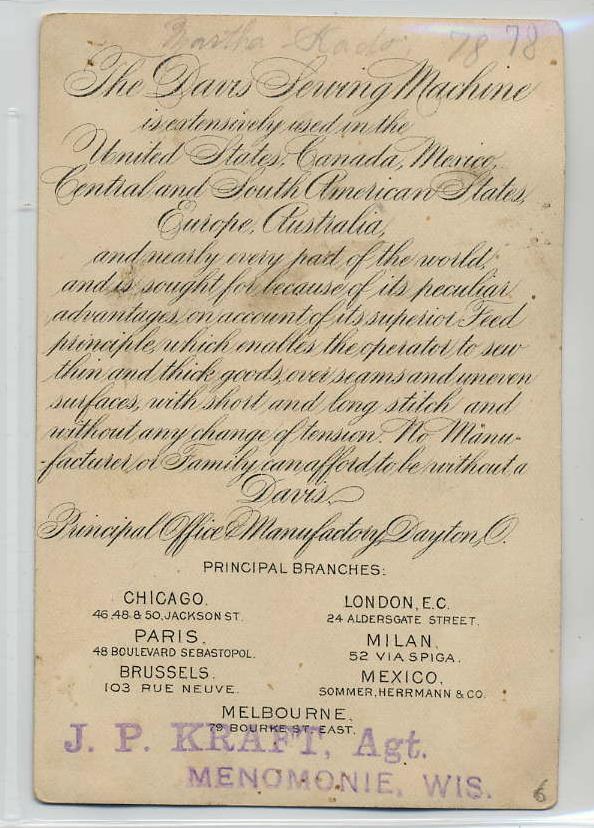 78 78
The Davis Sewing Machine
is extensively used in the
United States, Canada, Mexico,
Central and South American States,
Europe, Australia,
and nearly every part of the world,
and is sought for because of its peculiar
advantages, on account of its superior Feed
principle, which enables the operator to sew
thin and thick goods, over seams and uneven
surfaces, with short and long stitch and
without any change of tension. No Manu-
-facturer or Family can afford to be without a
Davis.
Principal Office & Manufactory, Dayton, O.
PRINCIPAL BRANCHES:
CHICAGO.
46, 48 & 50, JACKSON ST.
LONDON, E.C.
24 ALDERSGATE STREET.
PARIS,
48 BOULEVARD SEBASTOPOL.
MILAN,
52 VIA SPIGA.
BRUSSELS.
103 RUE NEUVE.
MEXICO,
SOMMER, HERRMANN & CO.
MELBOURNE,
79 BOURKE ST. EAST.
J. P. KRAFT, Agt.
MENOMONIE, WIS.
6